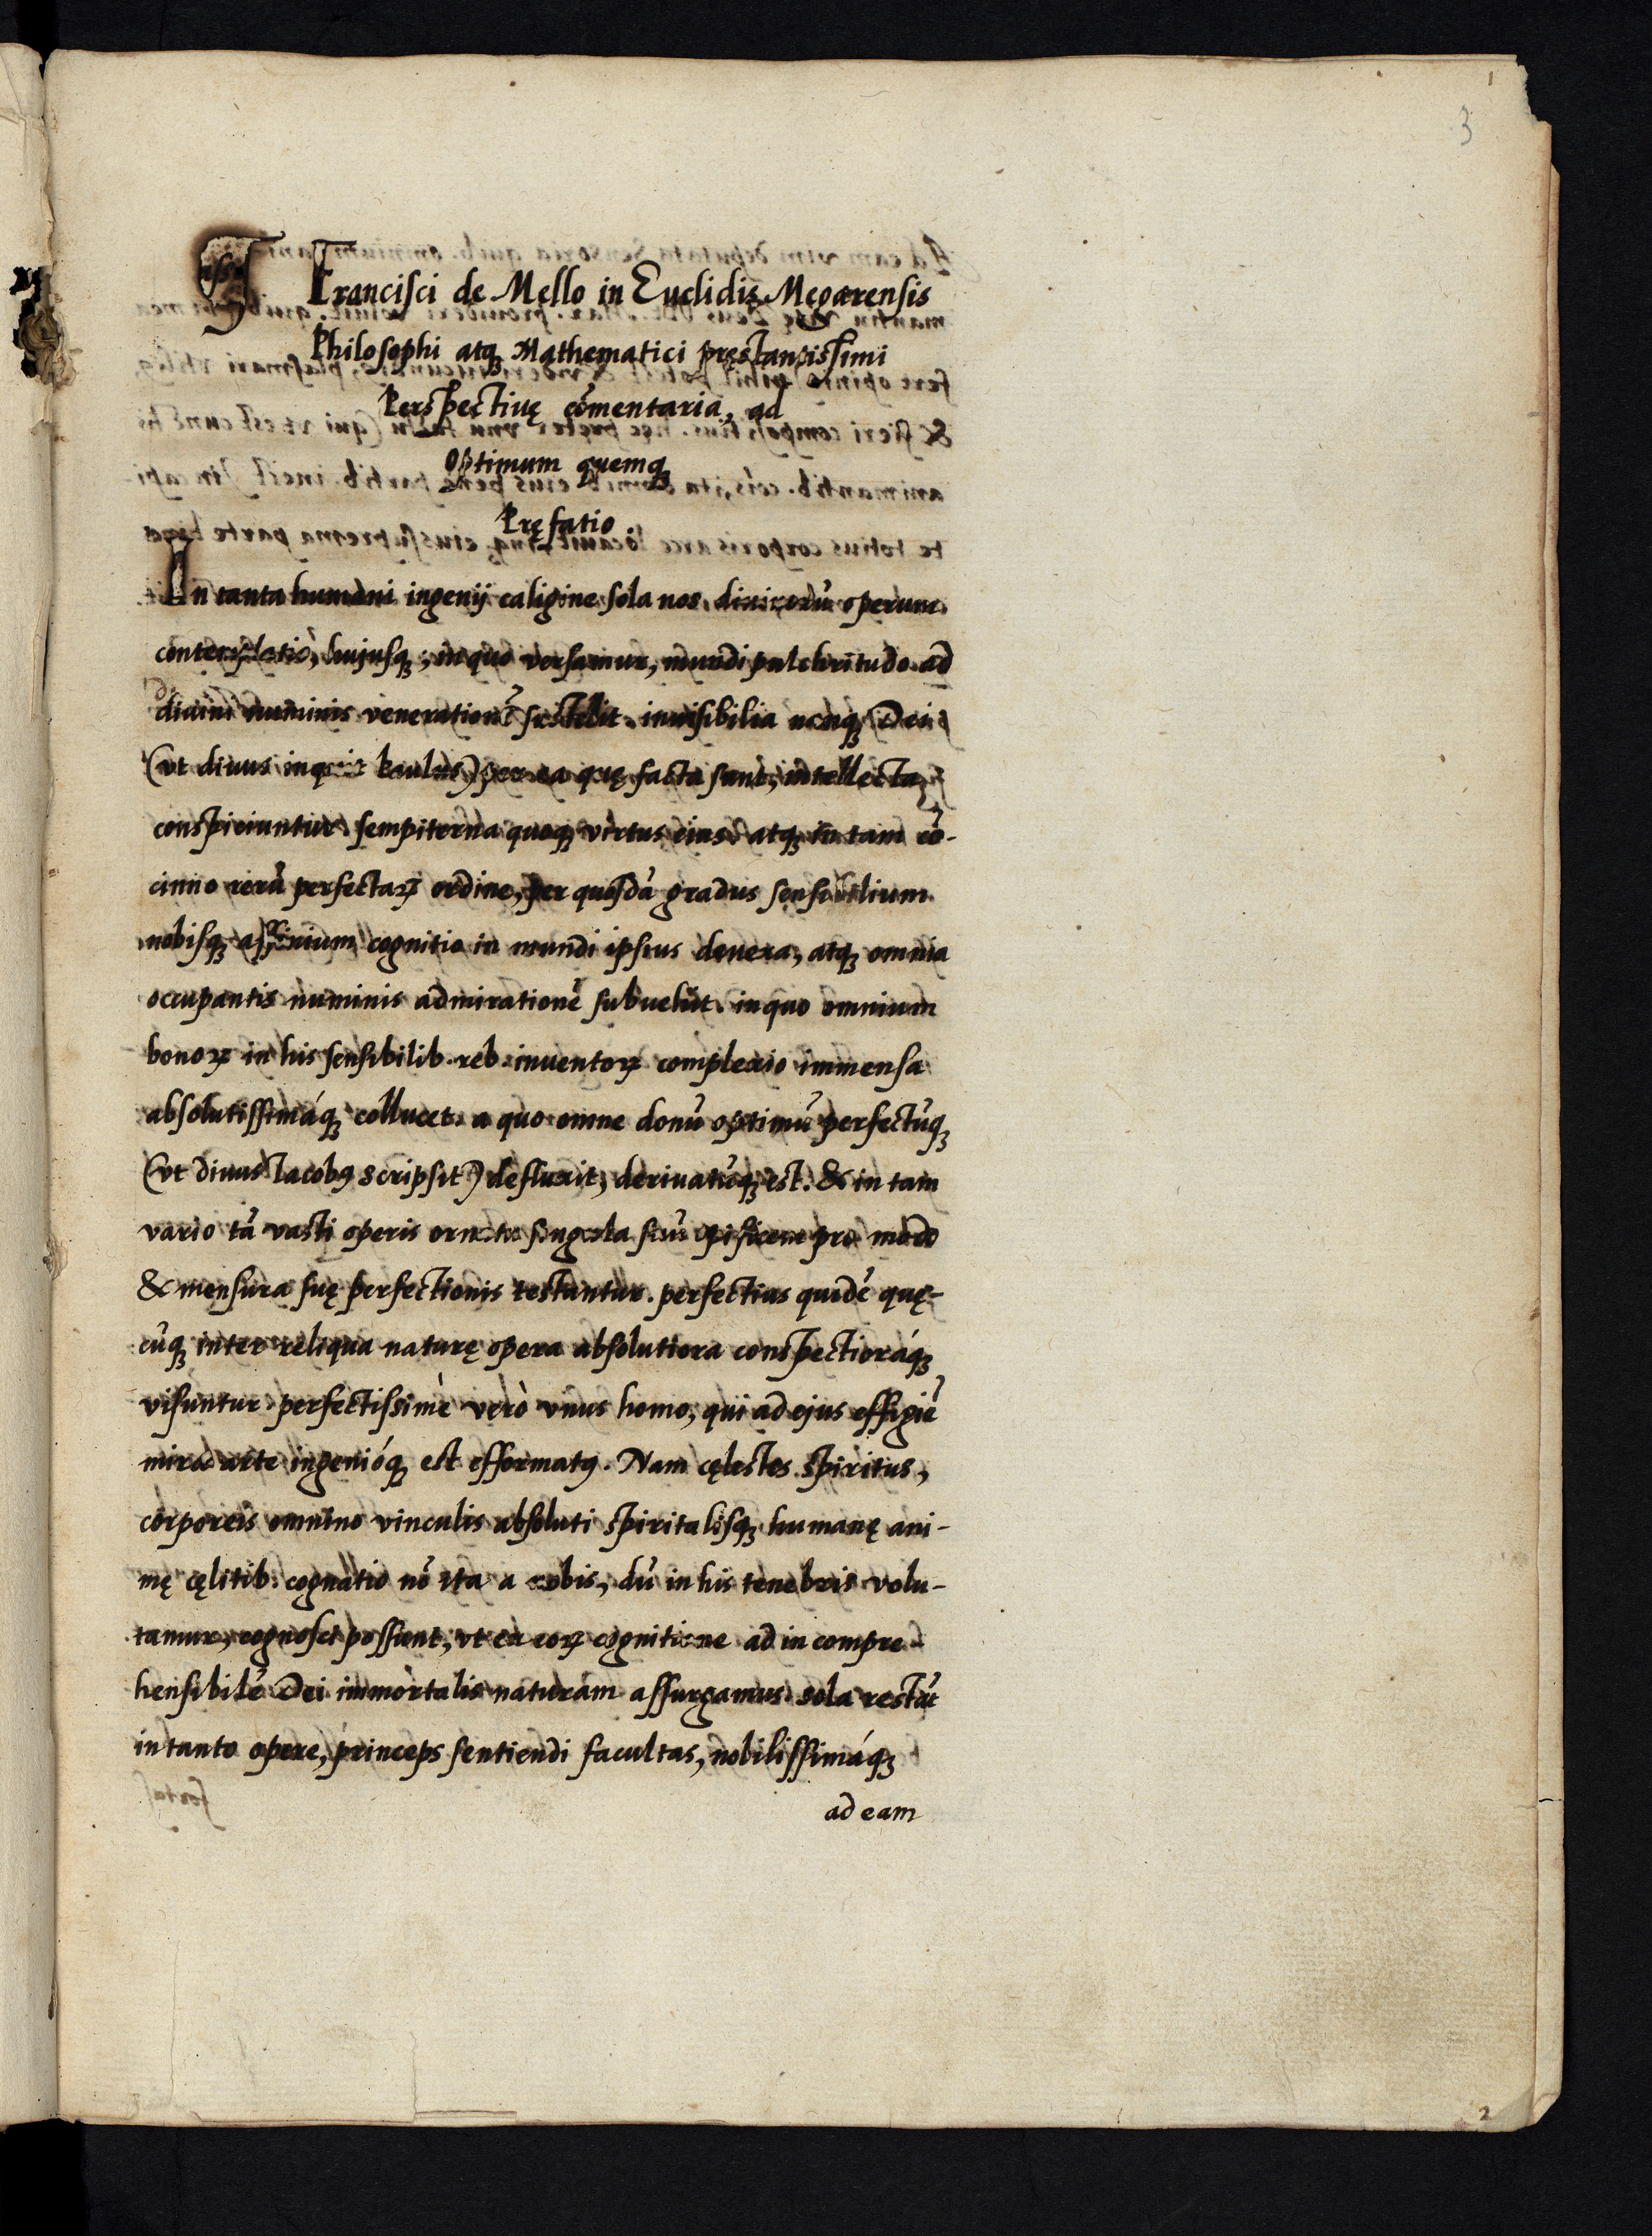 1
3
Francisci de Mello in Euclidis Megarensis
Philosophi atq; Mathematici pręstantissimi
Perspectiuę cōmentaria, ad
optimum quemq;
Pręfatio.
In tanta humani ingenij caligine sola nos diuinorū operum
contemplatio, hujusq; in quo versamur, mundi pulchritudo ad
diuini numinis venerationē inuisibilia Dei
(vt diuus inquit Paulus) per ea quę facta sunt, intellecta
conspiciuntur. sempiterna quoq; virtus eius. atq; in tam cō-
cinno rerū perfectaꝝ ordine, per quosdā gradus sensibilium
nobisq; affinium cognitio in mundi ipsius atq; omnia
occupantis numinis admirationē in quo omnium
bonoꝝ in his sensibilib. reb. inuentoꝝ complexio immensa
absolutissimáq; collucet. a quo omne donū optimū perfectūq;
(vt diuus Iacobꝰ scripsit) defluxit, deriuatūq; est. & in tam
vario tā vasti operis ornatu singula suū opificem pro modo
& mensura suę perfectionis testantur. perfectius quidē quę-
cūq; inter reliqua naturę opera absolutiora conspectioráq;
visuntur. perfectissimè verò vnus homo, qui ad ejus effigiē
mira arte ingenióq; est efformatꝰ. Nam cęlestes spiritus,
corporeis omnino vinculis absoluti spiritalisq; humanę ani-
mę cęlitib. cognatio nō ita a nobis, dū in his tenebris volu-
tamur, cognosci possunt, vt ex eoꝝ cognitione ad in compre-
hensibilē Dei immortalis naturam assurgamus. sola restat
in tanto opere, princeps sentiendi facultas, nobilissimáq;
ad eam
2